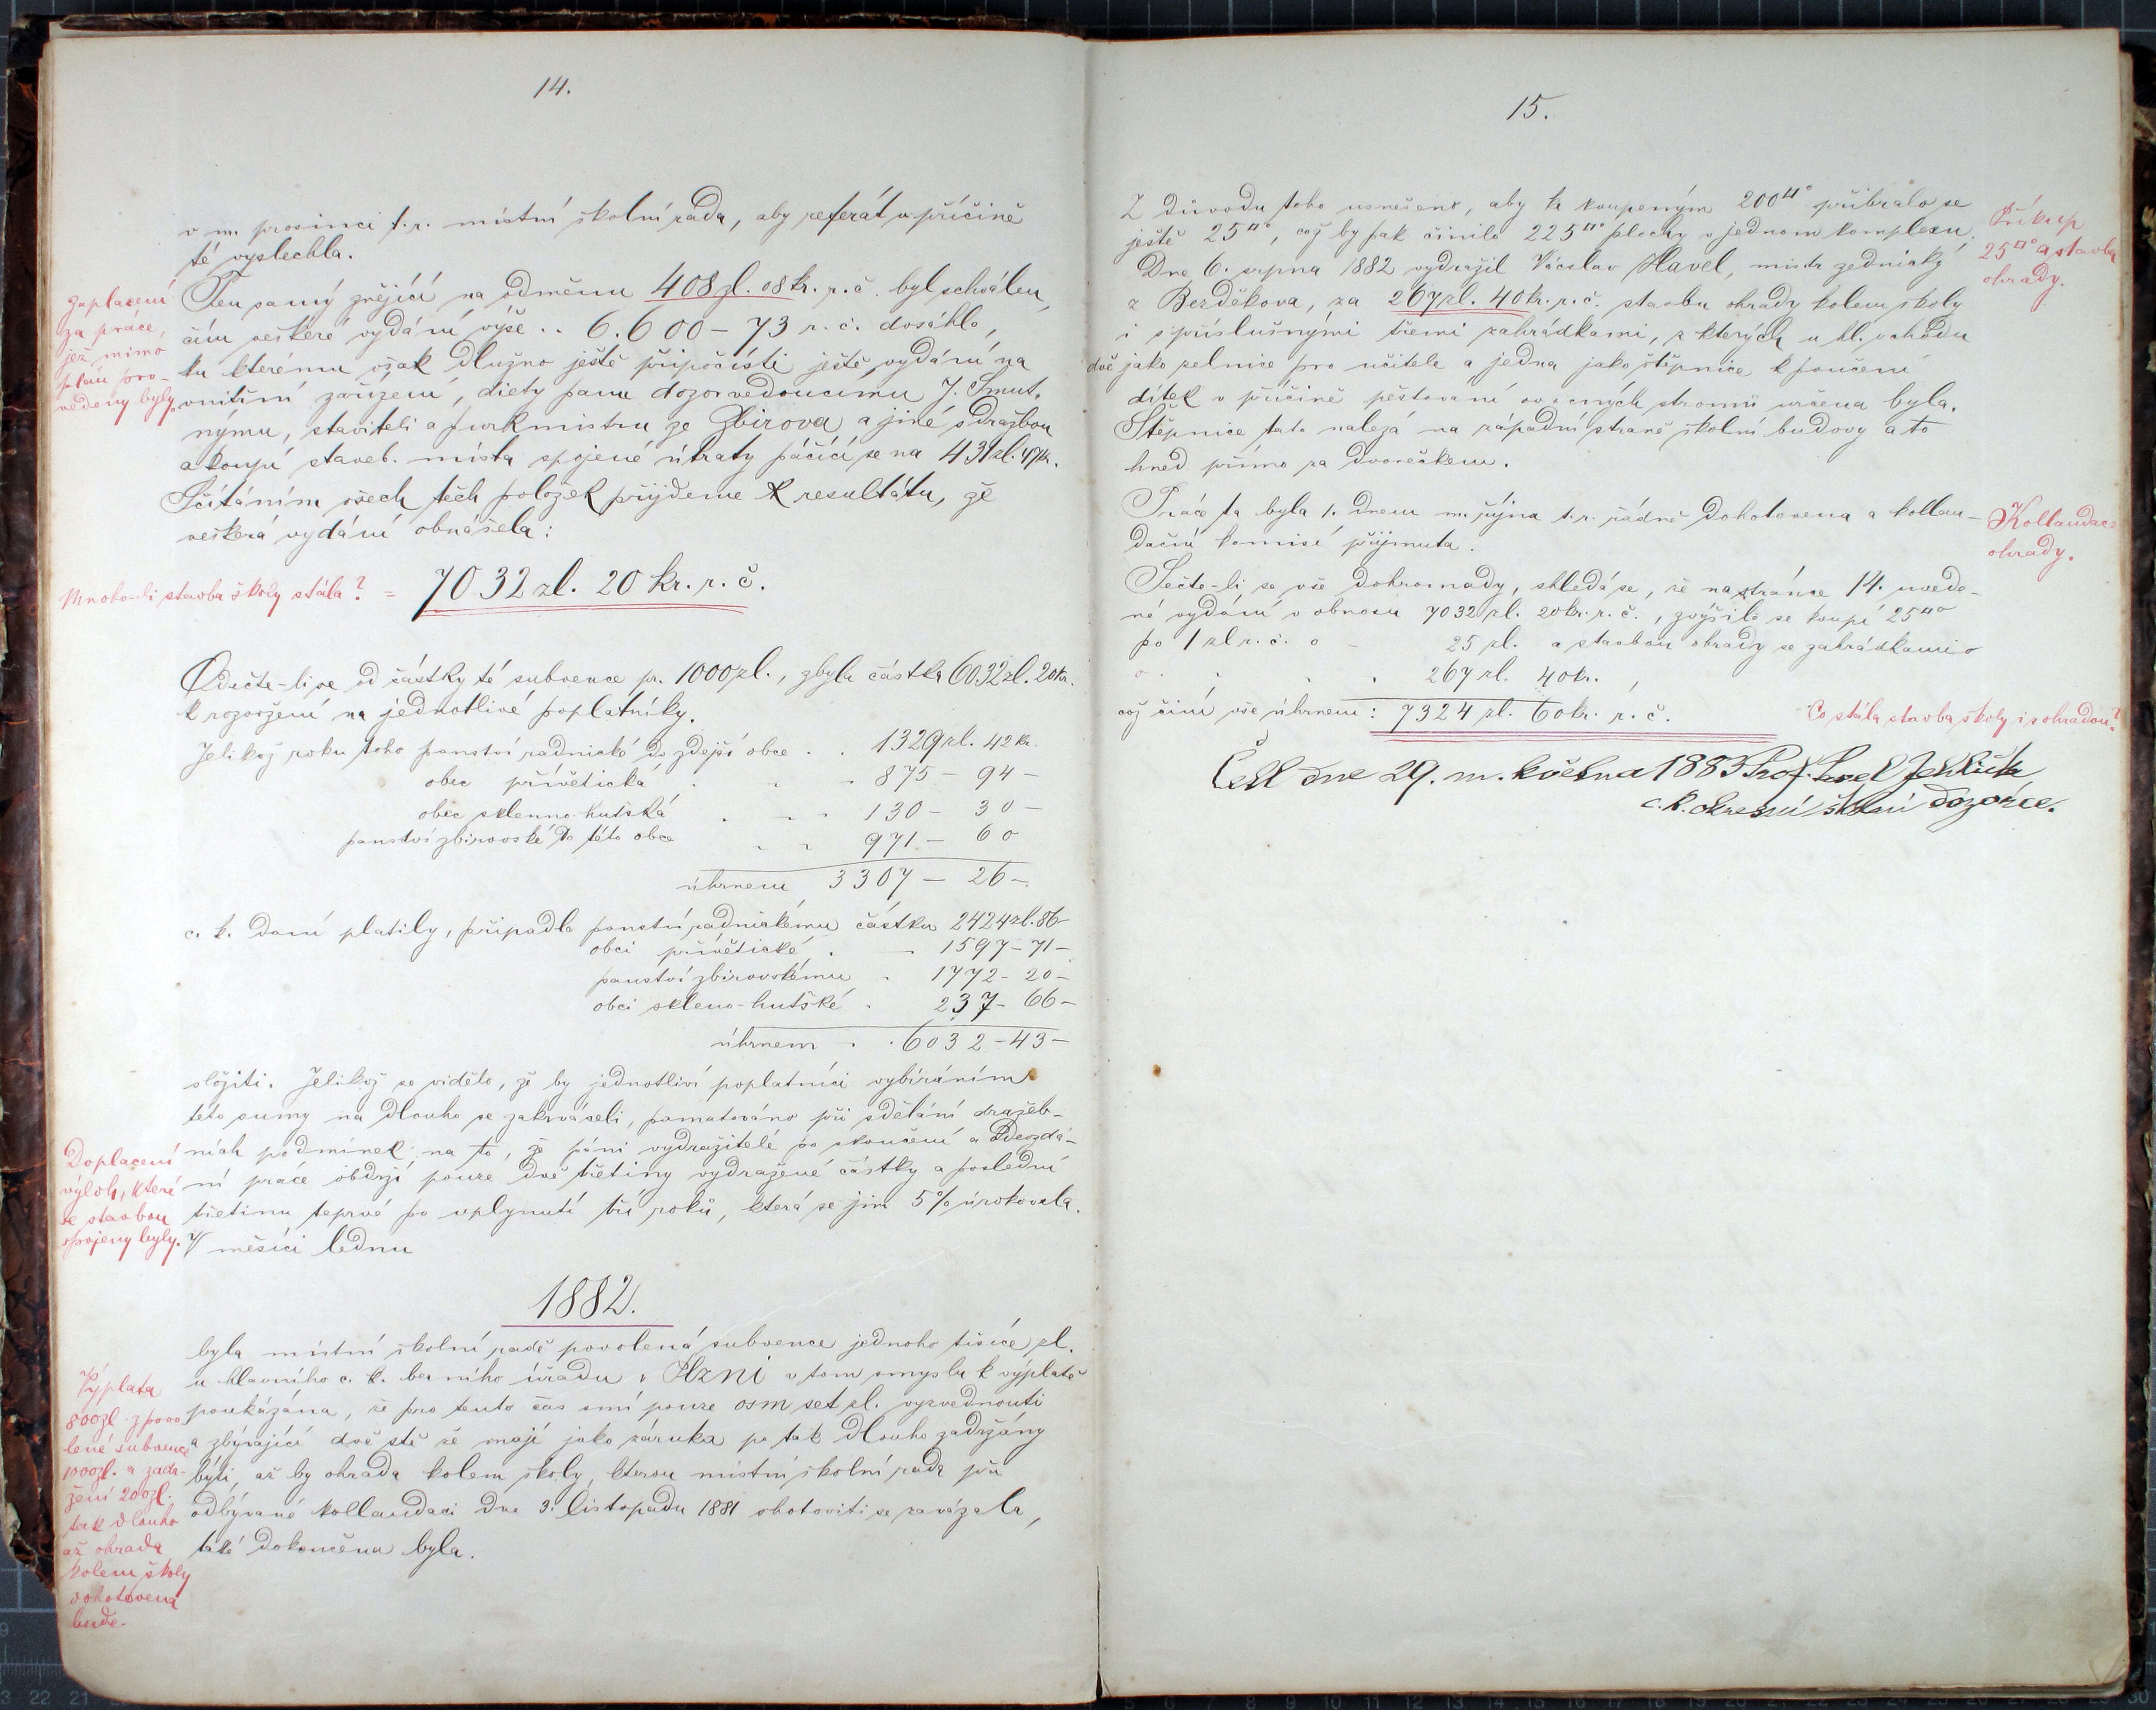 14.
v m. prosinci t. r. místní školní rada, aby referát v příčině
té vyslechla.
Zaplacení
za práce,
jež mimo
plán pro-
vedeny byly.
Ten samý znějící na odměnu 408 zl. 08 kr. r. č. byl schválen,
čím veškeré vydání výše .. 6.600 - 73 r. č. dosáhlo,
ku kterému však dlužno ještě připočísti ještě vydání na
vnitřní zařízení, diety panu dozorvedoucímu J. Smut-
nýmu, staviteli a purkmistru ze Zbirova a jiné s dražbou
a koupí staveb. místa spojené útraty páčící se na 431 zl. 47 kr.
Sčítáním všech těch položek přijdeme k resultátu, že
veškerá vydání obnášela:
Mnoho-li stavba školy stála? = 7032 zl. 20 kr. r. č.
Odečte-li se od částky té subvence pr. 1000 zl., zbyla částka 6032 zl. 20 kr.
k rozvržení na jednotlivé poplatníky.
Jelikož roku toho panství radnické do zdejší obce . . 1329 zl. 42 kr.
obec přívětická . . . 875 - 94 -
obec sklenno-hutská . . . 130 - 30 -
panství zbirovské do této obce . . 971 - 60
úhrnem 3307 - 26 -
c. k. daní platily, připadlo panství radnickému částku 2424 zl. 86
obci přívětické . - 1597 - 71 -
panství zbirovskému . 1772 - 20 -
obci skleno-hutské . 237 - 66 -
úhrnem . . 6032 - 43 -
složiti. Jelikož se vidělo, že by jednotliví poplatníci vybíráním
této sumy na dlouho se zakrváseli, pamatováno při sdělání dražeb-
ních podmínek na to, že páni vydražitelé po skončení a odevzdá-
ní práce obdrží pouze dvě třetiny vydražené částky a poslední
třetinu teprvé po uplynutí tří roků, která se jim 5% úrokovala.
Doplacení
výloh, které
se stavbou
spojeny byly.
V měsíci lednu
1882.
byla místní školní radě povolená subvence jednoho tisíce zl.
u hlavního c. k. berního úřadu v Plzni v tom smyslu k výplatě
poukázána, že pro tento čas smí pouze osm set zl. vyzvednouti
a zbývající dvě stě že mají jako záruka po tak dlouho zadržány
býti, až by ohrada kolem školy, kterou místní školní rada při
odbývané kollaudaci dne 3. listopadu 1881 shotoviti se zavázala,
také dokončena byla.
Výplata
800 zl. z povo
lené subvence
1000 zl. a zadr-
žení 200 zl.
tak dlouho
až ohrada
kolem školy
dohotovena
bude.
15.
Z důvodu toho usnešeno, aby ku koupeným 200□° přibralo se
ještě 25□°, což by pak činilo 225□° plochy v jednom komplexu.
Dne 6. srpna 1882 vydražil Václav Havel, mistr zednický
z Bezděkova, za 267 zl. 40 kr. r. č. stavbu ohrady kolem školy
i s příslušnými třemi zahrádkami, z kterých u hl. vchodu
dvě jako zelnice pro učitele a jedna jako štěpnice k poučení
dítek v příčině pěstování ovocných stromů určena byla.
Štěpnice tato nalezá na západní straně školní budovy a to
hned přímo za dvorečkem.
Příkup
25□° a stavba
ohrady.
Práce ta byla 1. dnem m. října t. r. řádně dohotovena a kollau-
dační komisí přijmuta.
Kollaudace
ohrady.
Sečte-li se vše dohromady, shledá se, že na stránce 14. uvede-
né vydání v obnosu 7032 zl. 20 kr. r. č., zvýšilo se koupí 25□°
po 1 zl r. č. o - 25 zl. a stavbou ohrady se zahrádkami o
o . . . . 267 zl. 40 kr.,
což činí vše úhrnem: 7324 zl. 60 kr. r. č.
Co stála stavba školy i s ohradou?
Četl dne 29. m. května 1883 Prof. Pavel Jehlička
c. k. okresní školní dozorce.